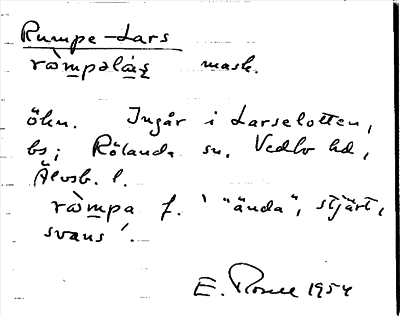 Rumpe-Lars
ròmpəlás̠ mask.
ökn. Ingår i Larselotten,
bs; Rölanda sn, Vedbo hd,
Älvsb. l.
ròmpa f. ' "ända", stjärt,
svans '.
E. 1954